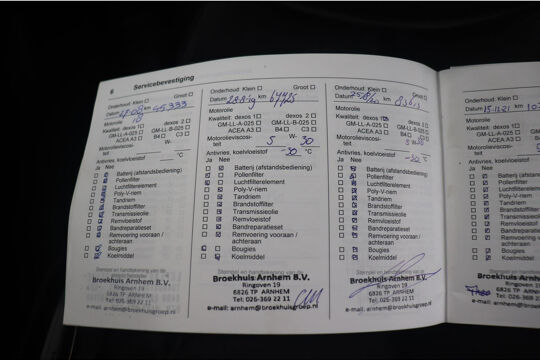 6 Servicebevestiging
Onderhoud: Klein Groot
Datum km 45333
Motorolie
Kwaliteit: dexos 1 dexos 2
GM-LL-A-025 GM-LL-B-025
ACEA A3 B4 C3
Motorolieviscositeit W-
Antivries, koelvloeistof °C
Ja Nee
Batterij (afstandsbediening)
Pollenfilter
Luchtfilterelement
Poly-V-riem
Tandriem
Brandstoffilter
Transmissieolie
Remvloeistof
Bandreparatieset
Remvoering vooraan /
achteraan
Bougies
Koelmiddel
Stempel en handtekening van de
Broekhuis Arnhem B.V.
Ringoven 19
6826 TP ARNHEM
Tel: 026-369 22 11
e-mail: arnhem@broekhuisgroep.nl
Onderhoud: Klein Groot
Datum km
Motorolie
Kwaliteit: dexos 1 dexos 2
GM-LL-A-025 GM-LL-B-025
ACEA A3 B4 C3
Motorolieviscositeit 5 W- 30
Antivries, koelvloeistof -30 °C
Ja Nee
Batterij (afstandsbediening)
Pollenfilter
Luchtfilterelement
Poly-V-riem
Tandriem
Brandstoffilter
Transmissieolie
Remvloeistof
Bandreparatieset
Remvoering vooraan /
achteraan
Bougies
Koelmiddel
Broekhuis Arnhem B.V.
Ringoven 19
6826 TP ARNHEM
Tel: 026-369 22 11
e-mail: arnhem@broekhuisgroep.nl
Onderhoud: Klein Groot
Datum km
Motorolie
Kwaliteit: dexos 1 dexos 2
GM-LL-A-025 GM-LL-B-025
ACEA A3 B4 C3
Motorolieviscositeit W-
Antivries, koelvloeistof -30 °C
Ja Nee
Batterij (afstandsbediening)
Pollenfilter
Luchtfilterelement
Poly-V-riem
Tandriem
Brandstoffilter
Transmissieolie
Remvloeistof
Bandreparatieset
Remvoering vooraan /
achteraan
Bougies
Koelmiddel
Broekhuis Arnhem B.V.
Ringoven 19
6826 TP ARNHEM
Tel: 026-369 22 11
e-mail: arnhem@broekhuisgroep.nl
Onderhoud: Klein
Datum 15-11-21 km
Motorolie
Kwaliteit: dexos 1
GM-LL-A-025
ACEA A3
Antivries, koelvloeistof
Ja Nee
Batterij
Pollenfilter
Poly-V-riem
Tandriem
Brandstoffilter
Transmissieolie
Remvloeistof
Bandreparatieset
Remvoering
achteraan
Bougies
Koelmiddel